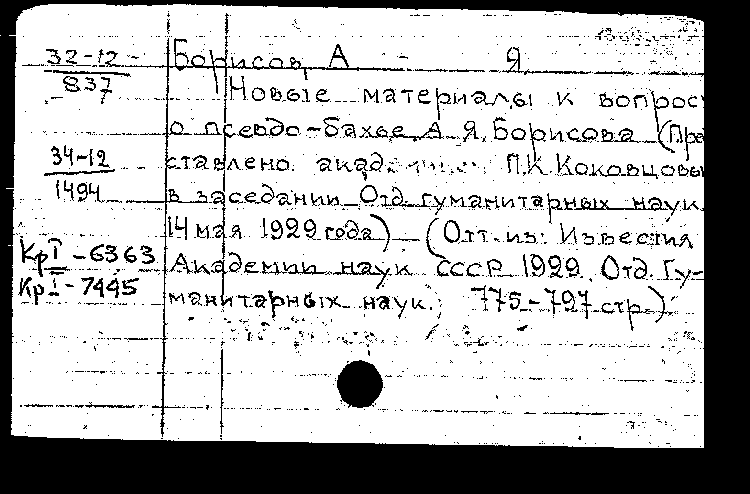 32-12
837
34-12
1494
Кр I - 6363
Кр I - 7445
Борисов, А - Я
Новые материалы к вопрос
о псевдо-Бахье А. Я. Борисова (Пре
ставлено П. К. Коковцовы
в заседании Отд. гуманитарных наук
14 мая 1929 года) - (Отт. из: Известия
Академии наук СССР 1929. Отд. Гу-
манитарных наук. 775-797 стр.)